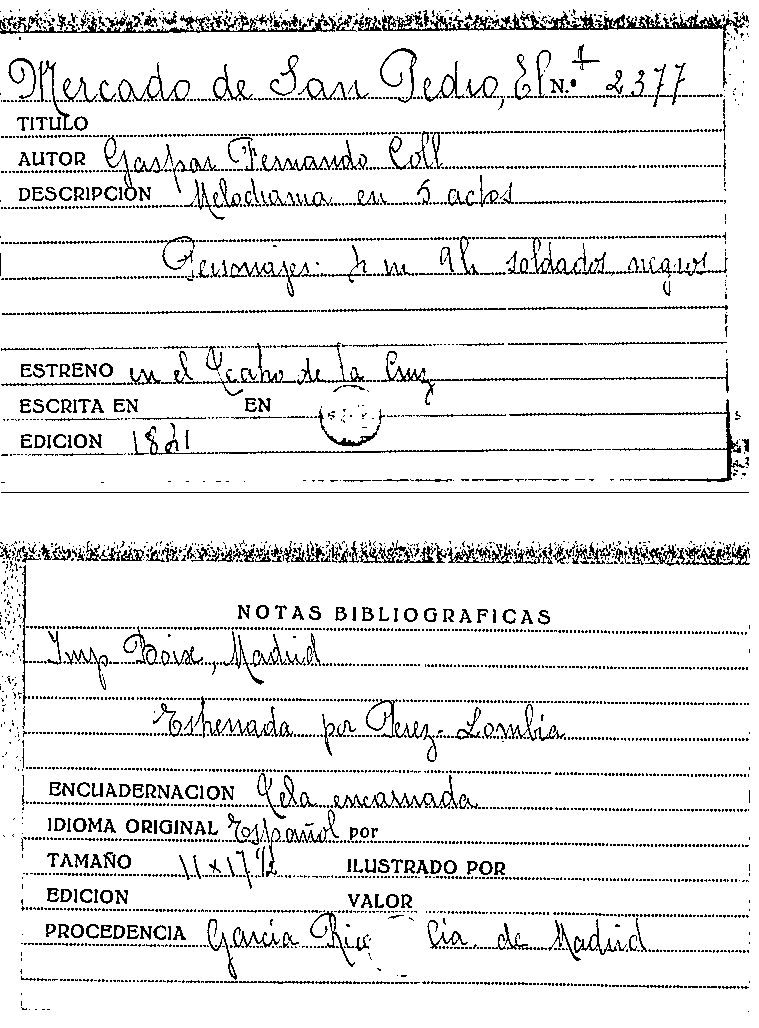 Mercado de San Pedro, El N.º 1 2377
TITULO
AUTOR Gaspar Fernando Coll
DESCRIPCION Melodrama en 5 actos
Personajes: m 9 h soldados negros
ESTRENO en el Teatro de la Cruz
ESCRITA EN EN
EDICION 1841
NOTAS BIBLIOGRAFICAS
Imp Boix, Madrid
Estrenada por Perez - Lombia
ENCUADERNACION Tela encarnada
IDIOMA ORIGINAL Español por
TAMAÑO 11 x 17 1/2 ILUSTRADO POR
EDICION VALOR
PROCEDENCIA Garcia Rico Cia. de Madrid